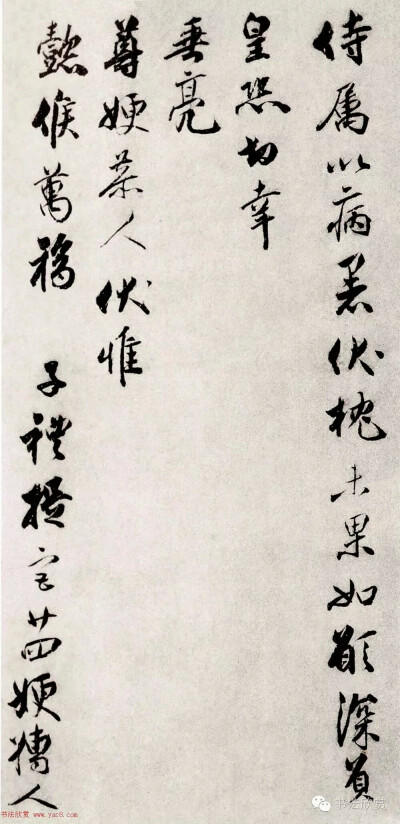 侍属以病暑伏枕未果如願深負
皇恐切幸
垂亮
尊嫂恭人伏惟
懿候萬福 子禮提宮廿四嫂孺人
书法欣赏 www.yac8.com
书法欣赏